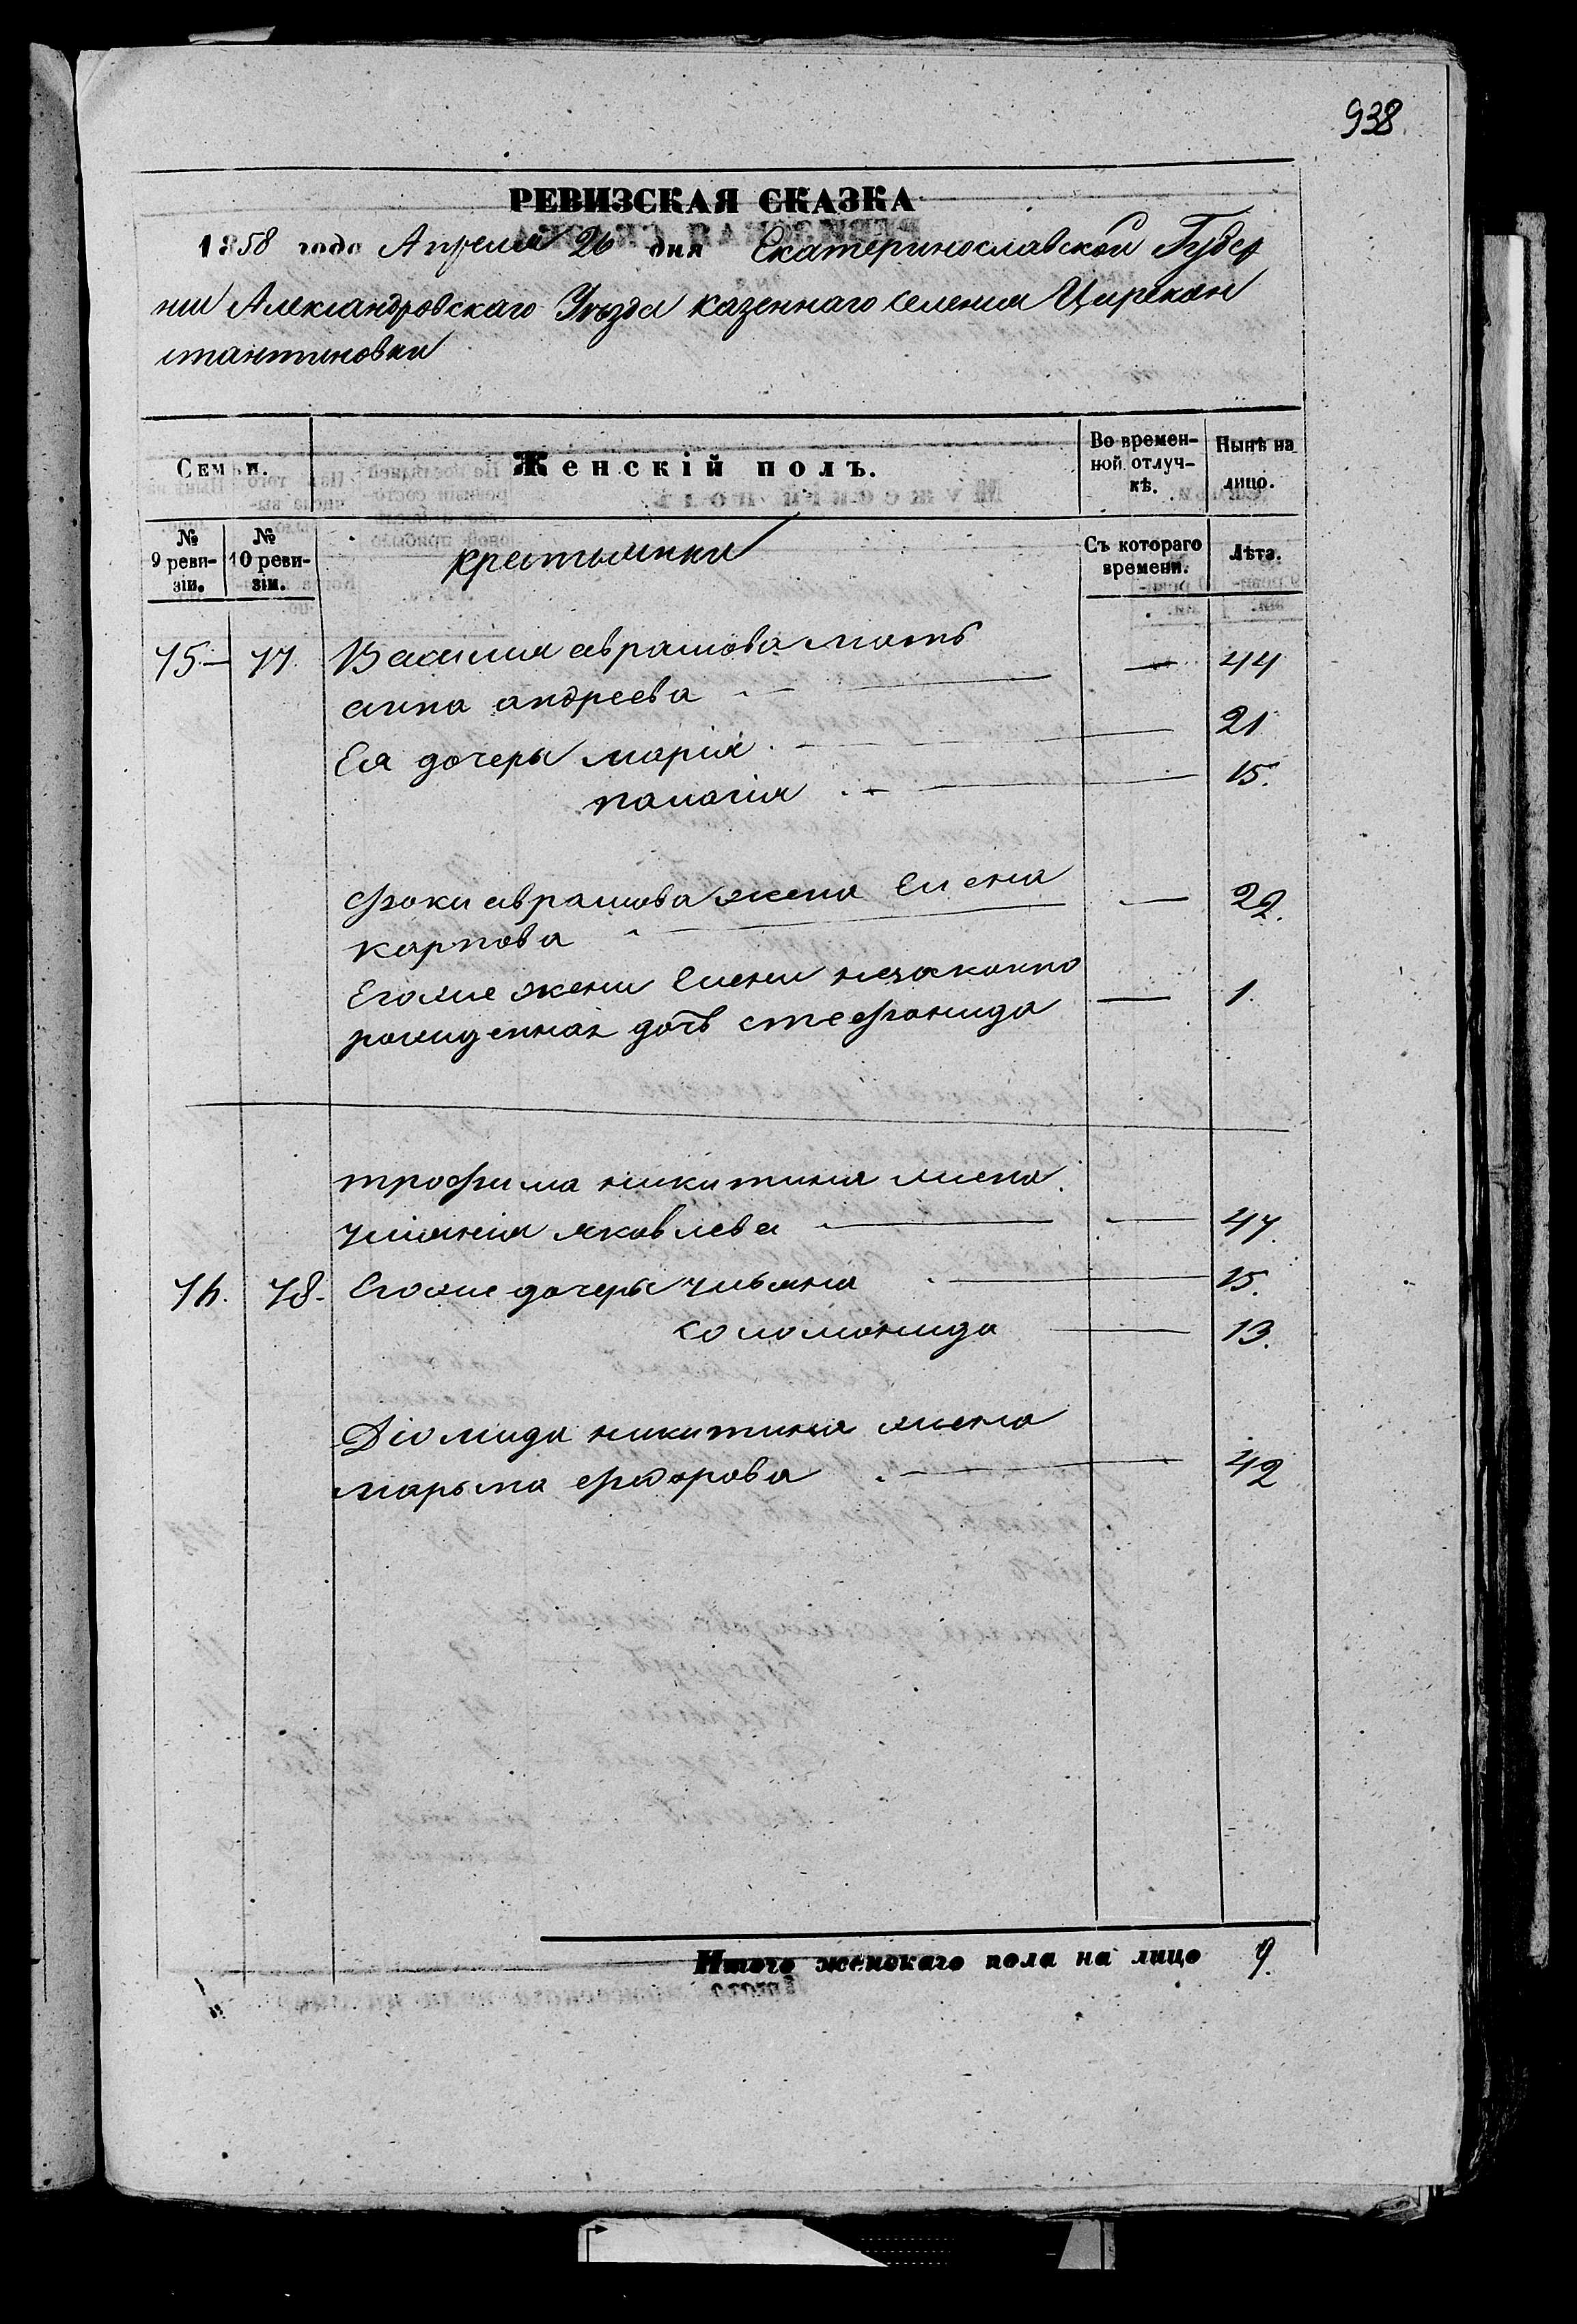 938
РЕВИЗСКАЯ СКАЗКА
1858 года Апреля 26 дня Екатеринославской Губер
нии Александровскаго Уѣзда казеннаго селения Цареконс
тантиновки
Семьи.
Женскій полъ.
Во времен-
ной отлуч-
кѣ.
Нынѣ на
лицо.
№
9 реви-
зіи.
№
10 реви-
зіи.
крестьянки
Съ котораго
времени.
Лѣта.
75 – 77. Василия аврамова мать — 44
анна андреева
Ея дочеры мария — 21
палагия — 15.
Фоки аврамова жена Елена — 22.
карпова
Егоже жены Елены незаконно — 1.
рожденная дочь стефанида
трофима никитина жена
улиания яковлева — 47.
76. 78. Егоже дочеры ульяна — 15.
соломанида — 13.
Діомида никитина жена
марьма федорова — 42
Итого женскаго пола на лицо 9.